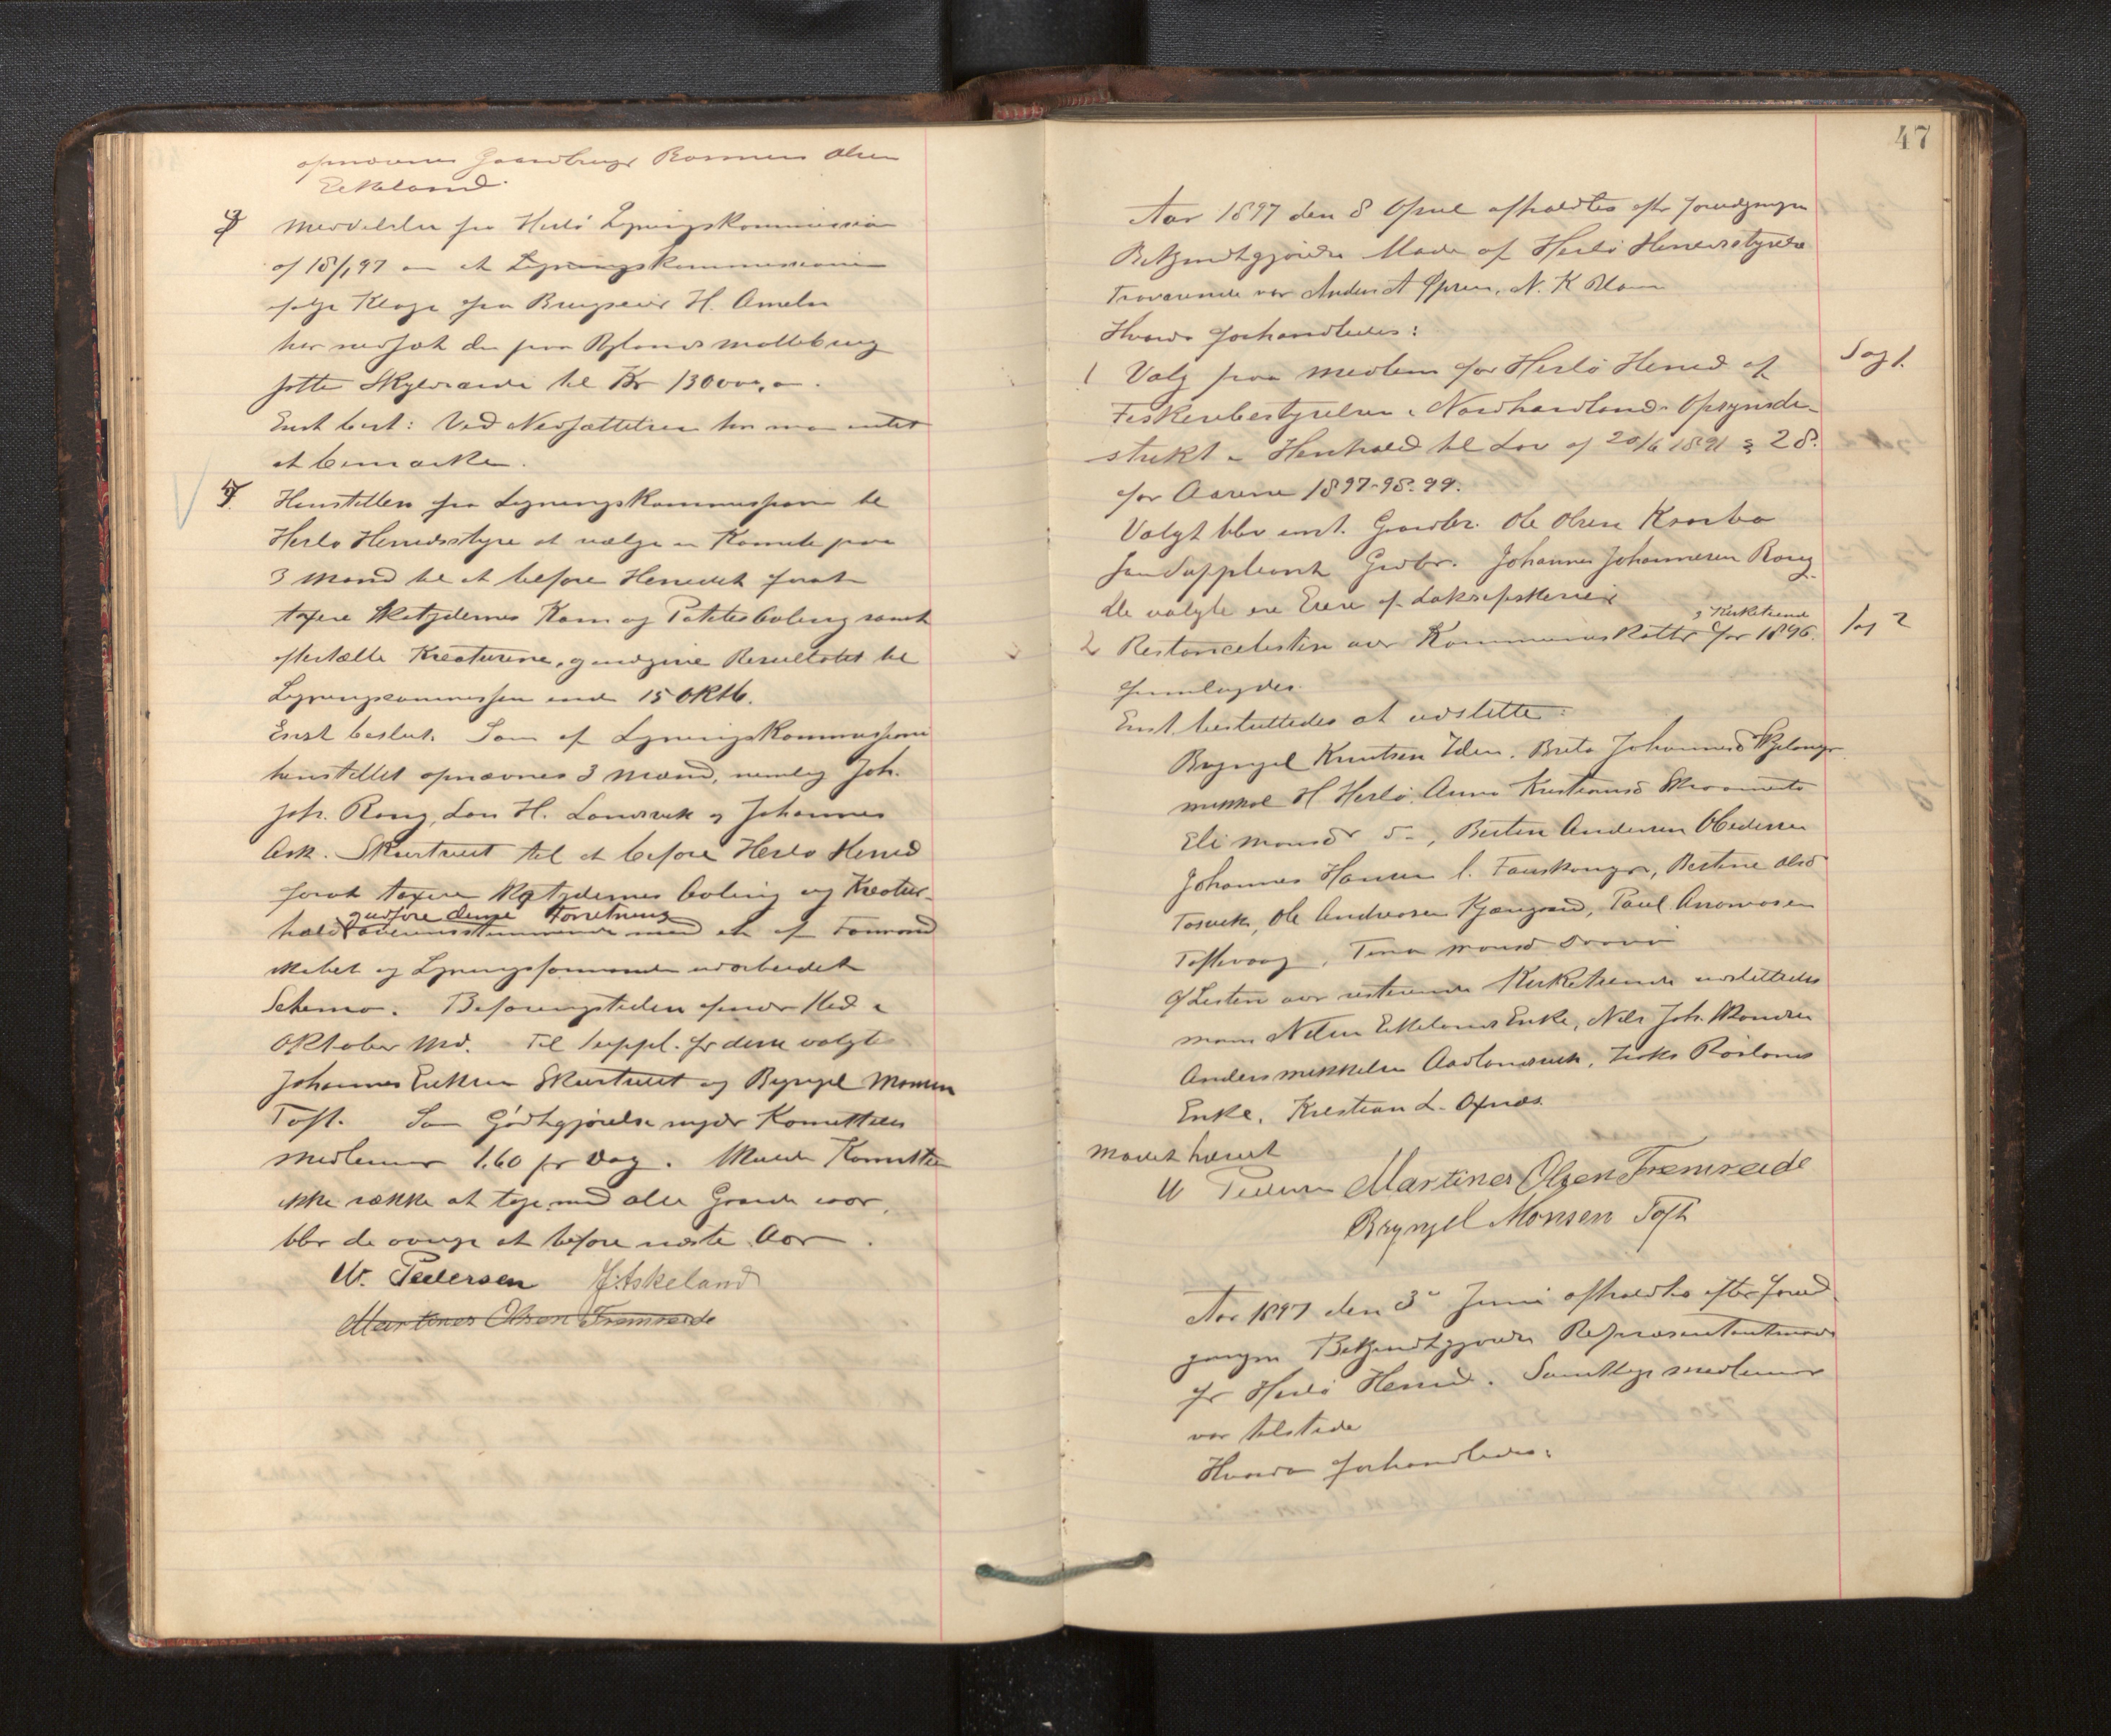 opnævnes Gaardbruger Rasmus Olsen
Eikeland.
3 Meddelelse fra Herlø Ligningskommission
af 18/1 97 om at Ligningskommissionen
ifølge Klage fra Brugseier H. Ameln
har nedsat den paa Rylands Møllebrug
satte Skyldværdi til Kr 130000,00.
Enst besl: Ved Nedsættelsen har man intet
at bemærke.
4 Henstillen fra Ligningskommissionen til
Herlø Herredsstyre at vælge en Komite paa
3 Mand til at befare Herredet forat
taxere Skatydernes Korn og Potetesavling samt
eftertælle Kreaturene, og indgive Resultatet til
Ligningskommissionen inden 15 Oktb.
Enst beslut. Som af Ligningskommissionen
henstillet opnævnes 3 Mænd, nemlig Joh.
Joh. Rong, Lars H. Landsvik og Johannes
Ask. Skurtveit til at befare Herlø Herred
forat taxere Skatydernes Avling og Kreatur-
og udføre denne Forretning
hold overensstemmende med et af Formand
skabet og Ligningsformanden udarbeidet
Schema. Befaringstiden finder Sted i
Oktober Md. Til Suppl. for disse valgtes
Johannes Eriksen Skurtveit og Brynjel Monsen
Toft. Som Godtgjørelse nyder Komitteens
Medlemmer 1.60 pr Dag. Skulde Komitteen
ikke række at tage med alle Gaarde iaar,
blir de øvrige at befare næste Aar.
W. Pedersen J. Askeland
Martines Olsen Fremreide
47
Aar 1897 den 8 April afholdtes efter foregaaende
Bekjendtgjørelse Møde af Herlø Herredsstyrelse
Fraværende var Anders A N. K Blom
Hvorda forhandledes:
1 Valg paa Medlem for Herlø Herred af Sag 1.
Fiskeribestyrelsen i Nordhordlands Opsynsdi-
strikt i Henhold til Lov af 20/6 1891 § 28.
for Aarene 1897-98-99.
Valgt blev enst. Gaardbr. Ole Olsen
som Suppleant Grdbr. Johannes Johannesen Rong.
De valgte ere Eiere af Laksefiskerier
& Kirketiende
2 Restancelisten over Kommuneskatter for 1896. Sag 2
fremlagdes.
Enst besluttedes at udslette:
Brynjel Knutsen Iden. Brita Johannesd
Mikkel H Herlø. Anna Kristiansd
Eli Monsd do, Berthe Andersen
Johannes Hansen l. Fauskanger, Bertine Olsd
Tosvik, Ole Andreasen Kjærgaard, Paul Andreasen
Toftevaag, Tina Monsd
Af Listen over resterende Kirketiende udslettedes
Mons Nilsen Eikelands Enke, Nils Joh.
Anders Mikkelsen Aadlandsvik, Røslands
Enke. Kristian L. Oxnæs.
Mødet hævet
W Pedersen Martines Olsen Fremreide
Brynjel Monsen Toft
Aar 1897 den 3de Juni afholdtes efter fored
gangen Bekjendtgjørelse Repræsentantmøde
for Herlø Herred. Samtlige Medlemmer
var tilstede
Hvorda forhandledes: